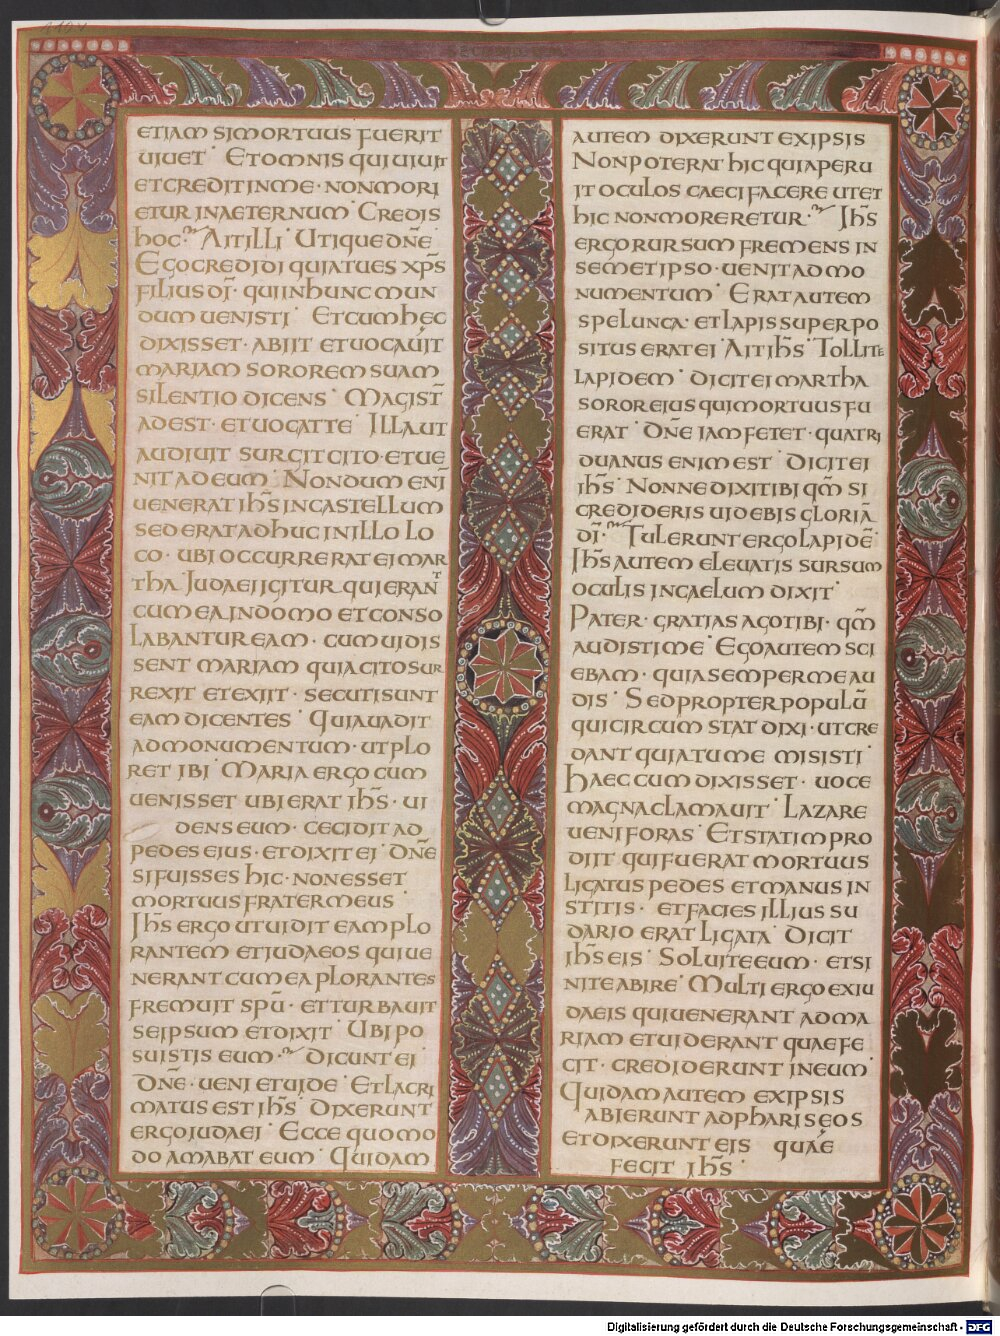 ETIAM SIMORTUUS FUERIT
UIUET· ETOMNIS QUIUIUIT
ETCREDITINME· NONMORI
ETUR INAETERNUM· CREDIS
HOC· AITILLI· UTIQUE DN̄E
EGOCREDIDI QUIATUES XP̄S
FILIUS DĪ· QUIINHUNC MUN
DUM UENISTI· ETCUMHEC
DIXISSET· ABIIT ETUOCAUIT
MARIAM SOROREM SUAM
SILENTIO DICENS· MAGIST̄
ADEST· ETUOCATTE· ILLAUT
AUDIUIT SURGIT CITO· ETUE
NIT ADEUM· NONDUM ENĪ
UENERAT IH̄S INCASTELLUM
SEDERATADHUC INILLO LO
CO· UBIOCCURRERAT EI MAR
THA· IUDAEI IGITUR QUIERANT
CUMEA INDOMO ETCONSO
LABANTUR EAM· CUMUIDIS
SENT MARIAM QUIACITOSUR
REXIT ETEXIIT· SECUTISUNT
EAM DICENTES· QUIAUADIT
ADMONUMENTUM· UTPLO
RET IBI· MARIA ERGO CUM
UENISSET UBIERAT IH̄S· UI
DENS EUM· CECIDIT AD
PEDES EIUS· ETDIXIT EI· DN̄E
SIFUISSES HIC· NONESSET
MORTUUS FRATER MEUS·
IH̄S ERGO UTUIDIT EAM PLO
RANTEM ETIUDAEOS QUIUE
NERANT CUM EA PLORANTES
FREMUIT SPŪ· ETTURBAUIT
SEIPSUM ETDIXIT· UBIPO
SUISTIS EUM· DICUNT EI·
DN̄E· UENI ETUIDE· ETLACRI
MATUS EST IH̄S· DIXERUNT
ERGO IUDAEI· ECCE QUOMO
DO AMABAT EUM· QUIDAM
AUTEM DIXERUNT EXIPSIS
NONPOTERAT HIC QUIAPERU
IT OCULOS CAECI FACERE UTET
HIC NONMORERETUR· IH̄S
ERGO RURSUM FREMENS IN
SEMETIPSO· UENIT AD MO
NUMENTUM· ERAT AUTEM
SPELUNCA· ETLAPIS SUPERPO
SITUS ERAT EI· AITIH̄S· TOLLITE
LAPIDEM· DICIT EI MARTHA
SOROR EIUS QUIMORTUUS FU
ERAT· DN̄E IAM FETET· QUATRI
DUANUS ENIM EST· DICIT EI
IH̄S· NONNE DIXITIBI QM̄ SI
CREDIDERIS UIDEBIS GLORIĀ
DĪ· TULERUNT ERGO LAPIDĒ·
IH̄S AUTEM ELEUATIS SURSUM
OCULIS INCAELUM DIXIT·
PATER· GRATIAS AGOTIBI· QM̄
AUDISTI ME· EGOAUTEM SCI
EBAM· QUIA SEMPER ME AU
DIS· SED PROPTER POPULŪ
QUI CIRCUM STAT DIXI· UTCRE
DANT QUIATUME MISISTI·
HAEC CUM DIXISSET· UOCE
MAGNA CLAMAUIT· LAZARE
UENI FORAS· ETSTATIM PRO
DIIT QUIFUERAT MORTUUS
LIGATUS PEDES ETMANUS IN
STITIS· ETFACIES ILLIUS SU
DARIO ERAT LIGATA· DICIT
IH̄S EIS· SOLUITE EUM· ETSI
NITE ABIRE· MULTI ERGO EXIU
DAEIS QUIUENERANT AD MA
RIAM ETUIDERANT QUAE FE
CIT· CREDIDERUNT INEUM·
QUIDAM AUTEM EXIPSIS
ABIERUNT ADPHARISEOS
ETDIXERUNT EIS QUAE
FECIT IH̄S·
Digitalisierung gefördert durch die Deutsche Forschungsgemeinschaft - DFG